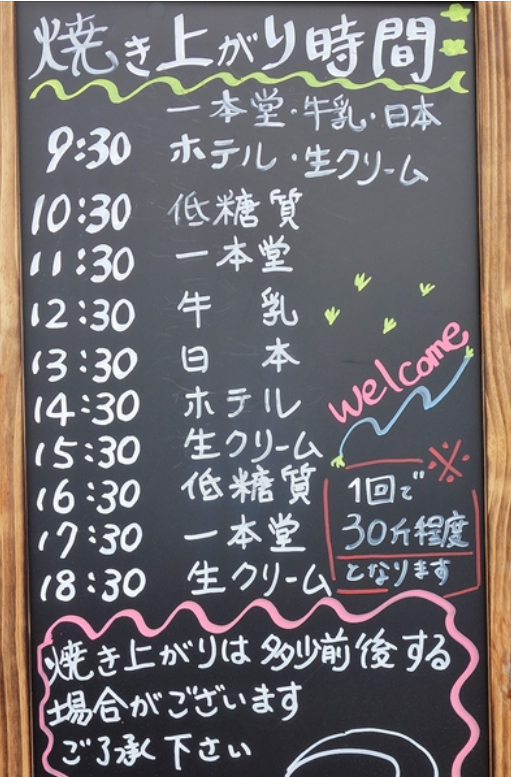 焼き上がり時間
9:30 一本堂・牛乳・日本
ホテル・生クリーム
10:30 低糖質
11:30 一本堂
12:30 牛 乳
13:30 日 本
14:30 ホテル
15:30 生クリーム
16:30 低糖質
17:30 一本堂
18:30 生クリーム
welcome
※
1回で
30斤程度
となります
焼き上がりは多少前後する
場合がございます
ご了承下さい